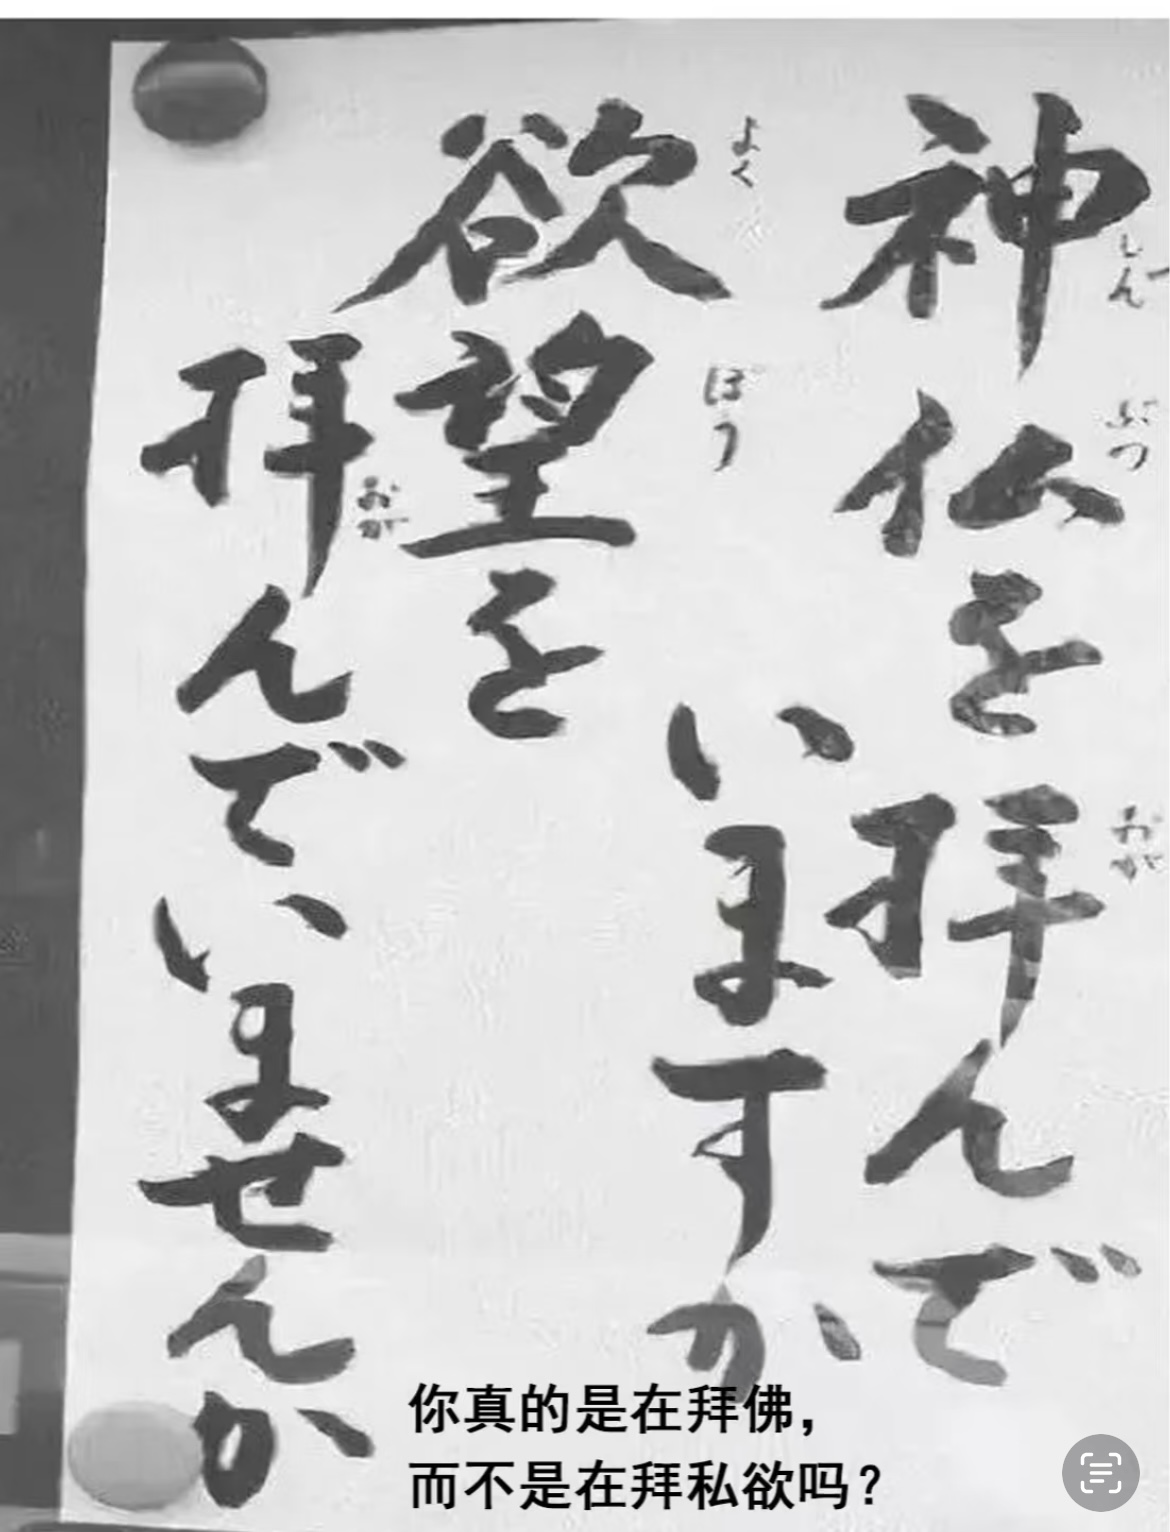 神仏を拝んで
いますか
欲望を
拝んでいませんか
しん
ぶつ
おが
よく
ぼう
おが
你真的是在拜佛，
而不是在拜私欲吗？